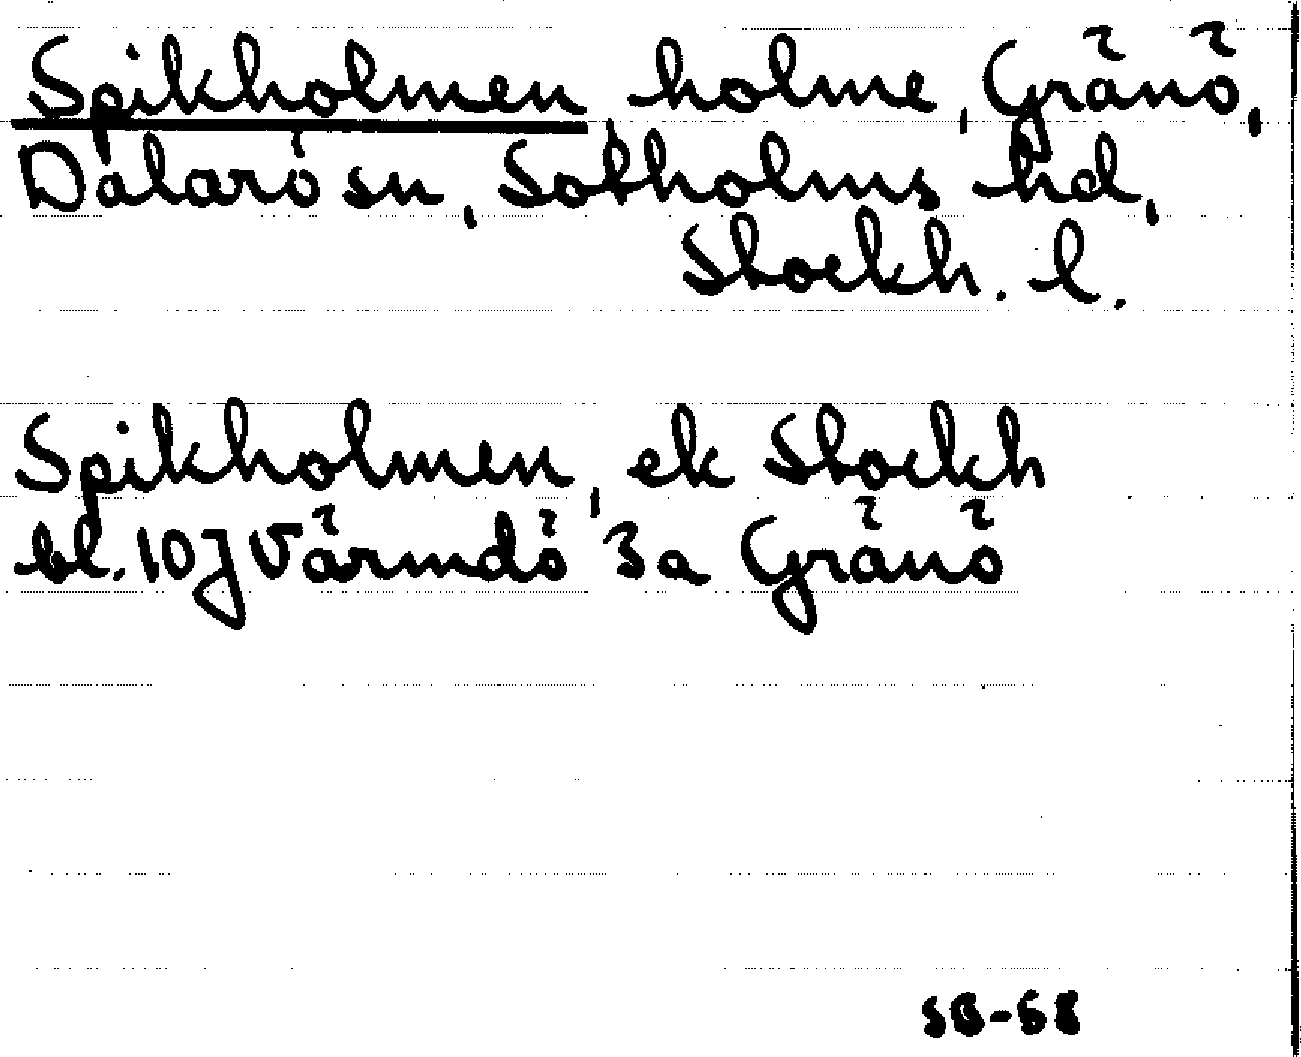 Spikholmen, holme, Gränö,
Dalarö sn, Sotholms hd,
Stockh. l.
Spikholmen, ek Stockh
bl. 10J Värmdö 3a Gränö
SB-58